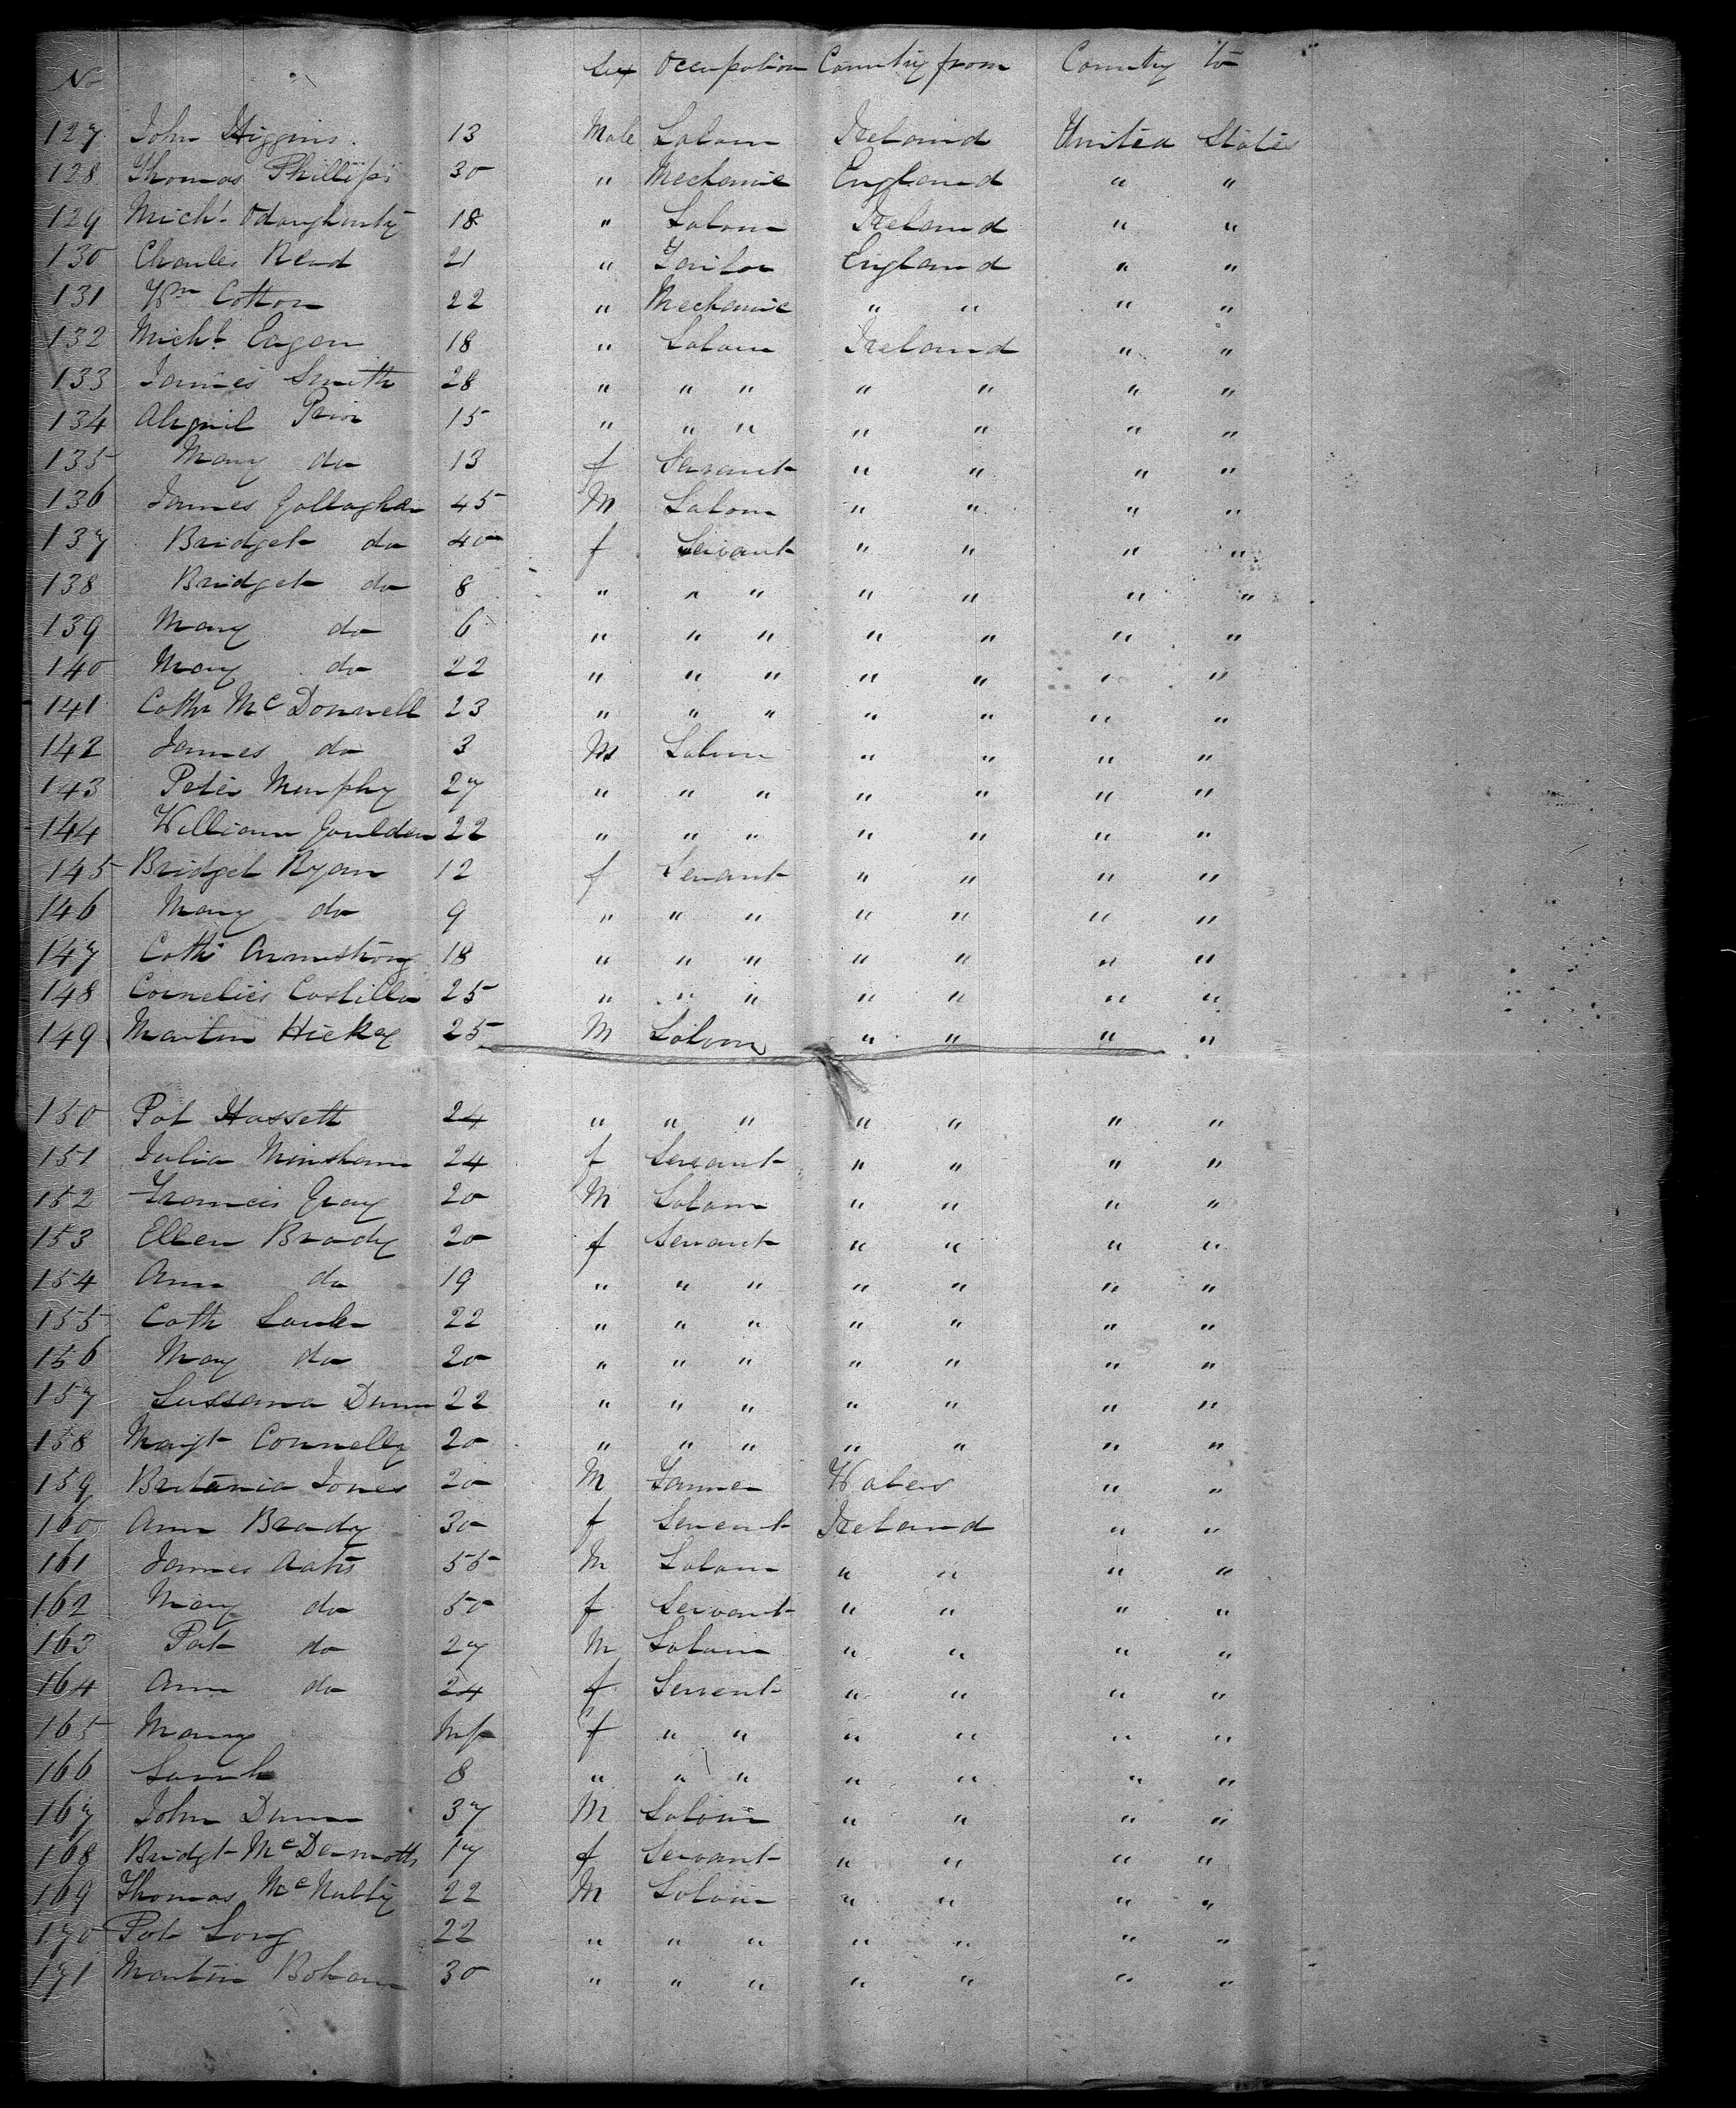 No Sex Occupation Country from Country to
127 John Higgins 13 Male Labour Ireland United States
128 Thomas Phillips 30 " Mechanic England " "
129 Michl Odaugherty 18 " Labour Ireland " "
130 Charles Read 21 " Tailor England " "
131 Wm Cotton 22 " Mechanic " " " "
132 Michl Eagan 18 " Labour Ireland " "
133 James Smith 28 " " " " " " "
134 Prior 15 " " " " " " "
135 Mary do 13 f Servant " " " "
136 James Gallagher 45 M Labour " " " "
137 Bridget do 40 f Servant " " " "
138 Bridget do 8 " " " " " " "
139 Mary do 6 " " " " " " "
140 Mary do 22 " " " " " " "
141 Cathr McDonnell 23 " " " " " " "
142 James do 3 M Labour " " " "
143 Peter Murphy 27 " " " " " " "
144 William Goulden 22 " " " " " " "
145 Bridget Ryan 12 f Servant " " " "
146 Mary do 9 " " " " " " "
147 Cath Armstrong 18 " " " " " " "
148 Cornelies Costillo 25 " " " " " " "
149 Martin Hickey 25 M Labour " " " "
150 Pat Hassett 24 " " " " " " "
151 Julia Minsham 24 f Servant " " " "
152 Francis Gray 20 M Labour " " " "
153 Ellen Brady 20 f Servant " " " "
154 Ann do 19 " " " " " " "
155 Cath 22 " " " " " " "
156 May do 20 " " " " " " "
157 Sussana Dunn 22 " " " " " " "
158 Margt Connelly 20 " " " " " " "
159 Britania Jones 20 M Farmer Wales " "
160 Ann Brady 30 f Servent Ireland " "
161 James 55 M Labour " " " "
162 Mary do 50 f Servant " " " "
163 Pat do 27 M Labour " " " "
164 Ann do 24 f Servent " " " "
165 Mary Inf f " " " " " "
166 Sarah 8 " " " " " " "
167 John Dunn 37 M Labour " " " "
168 Bridgt McDermott 17 f Servant " " " "
169 Thomas McNulty 22 M Labour " " " "
170 Pat Long 22 " " " " " " "
171 Martin Bohan 30 " " " " " " "